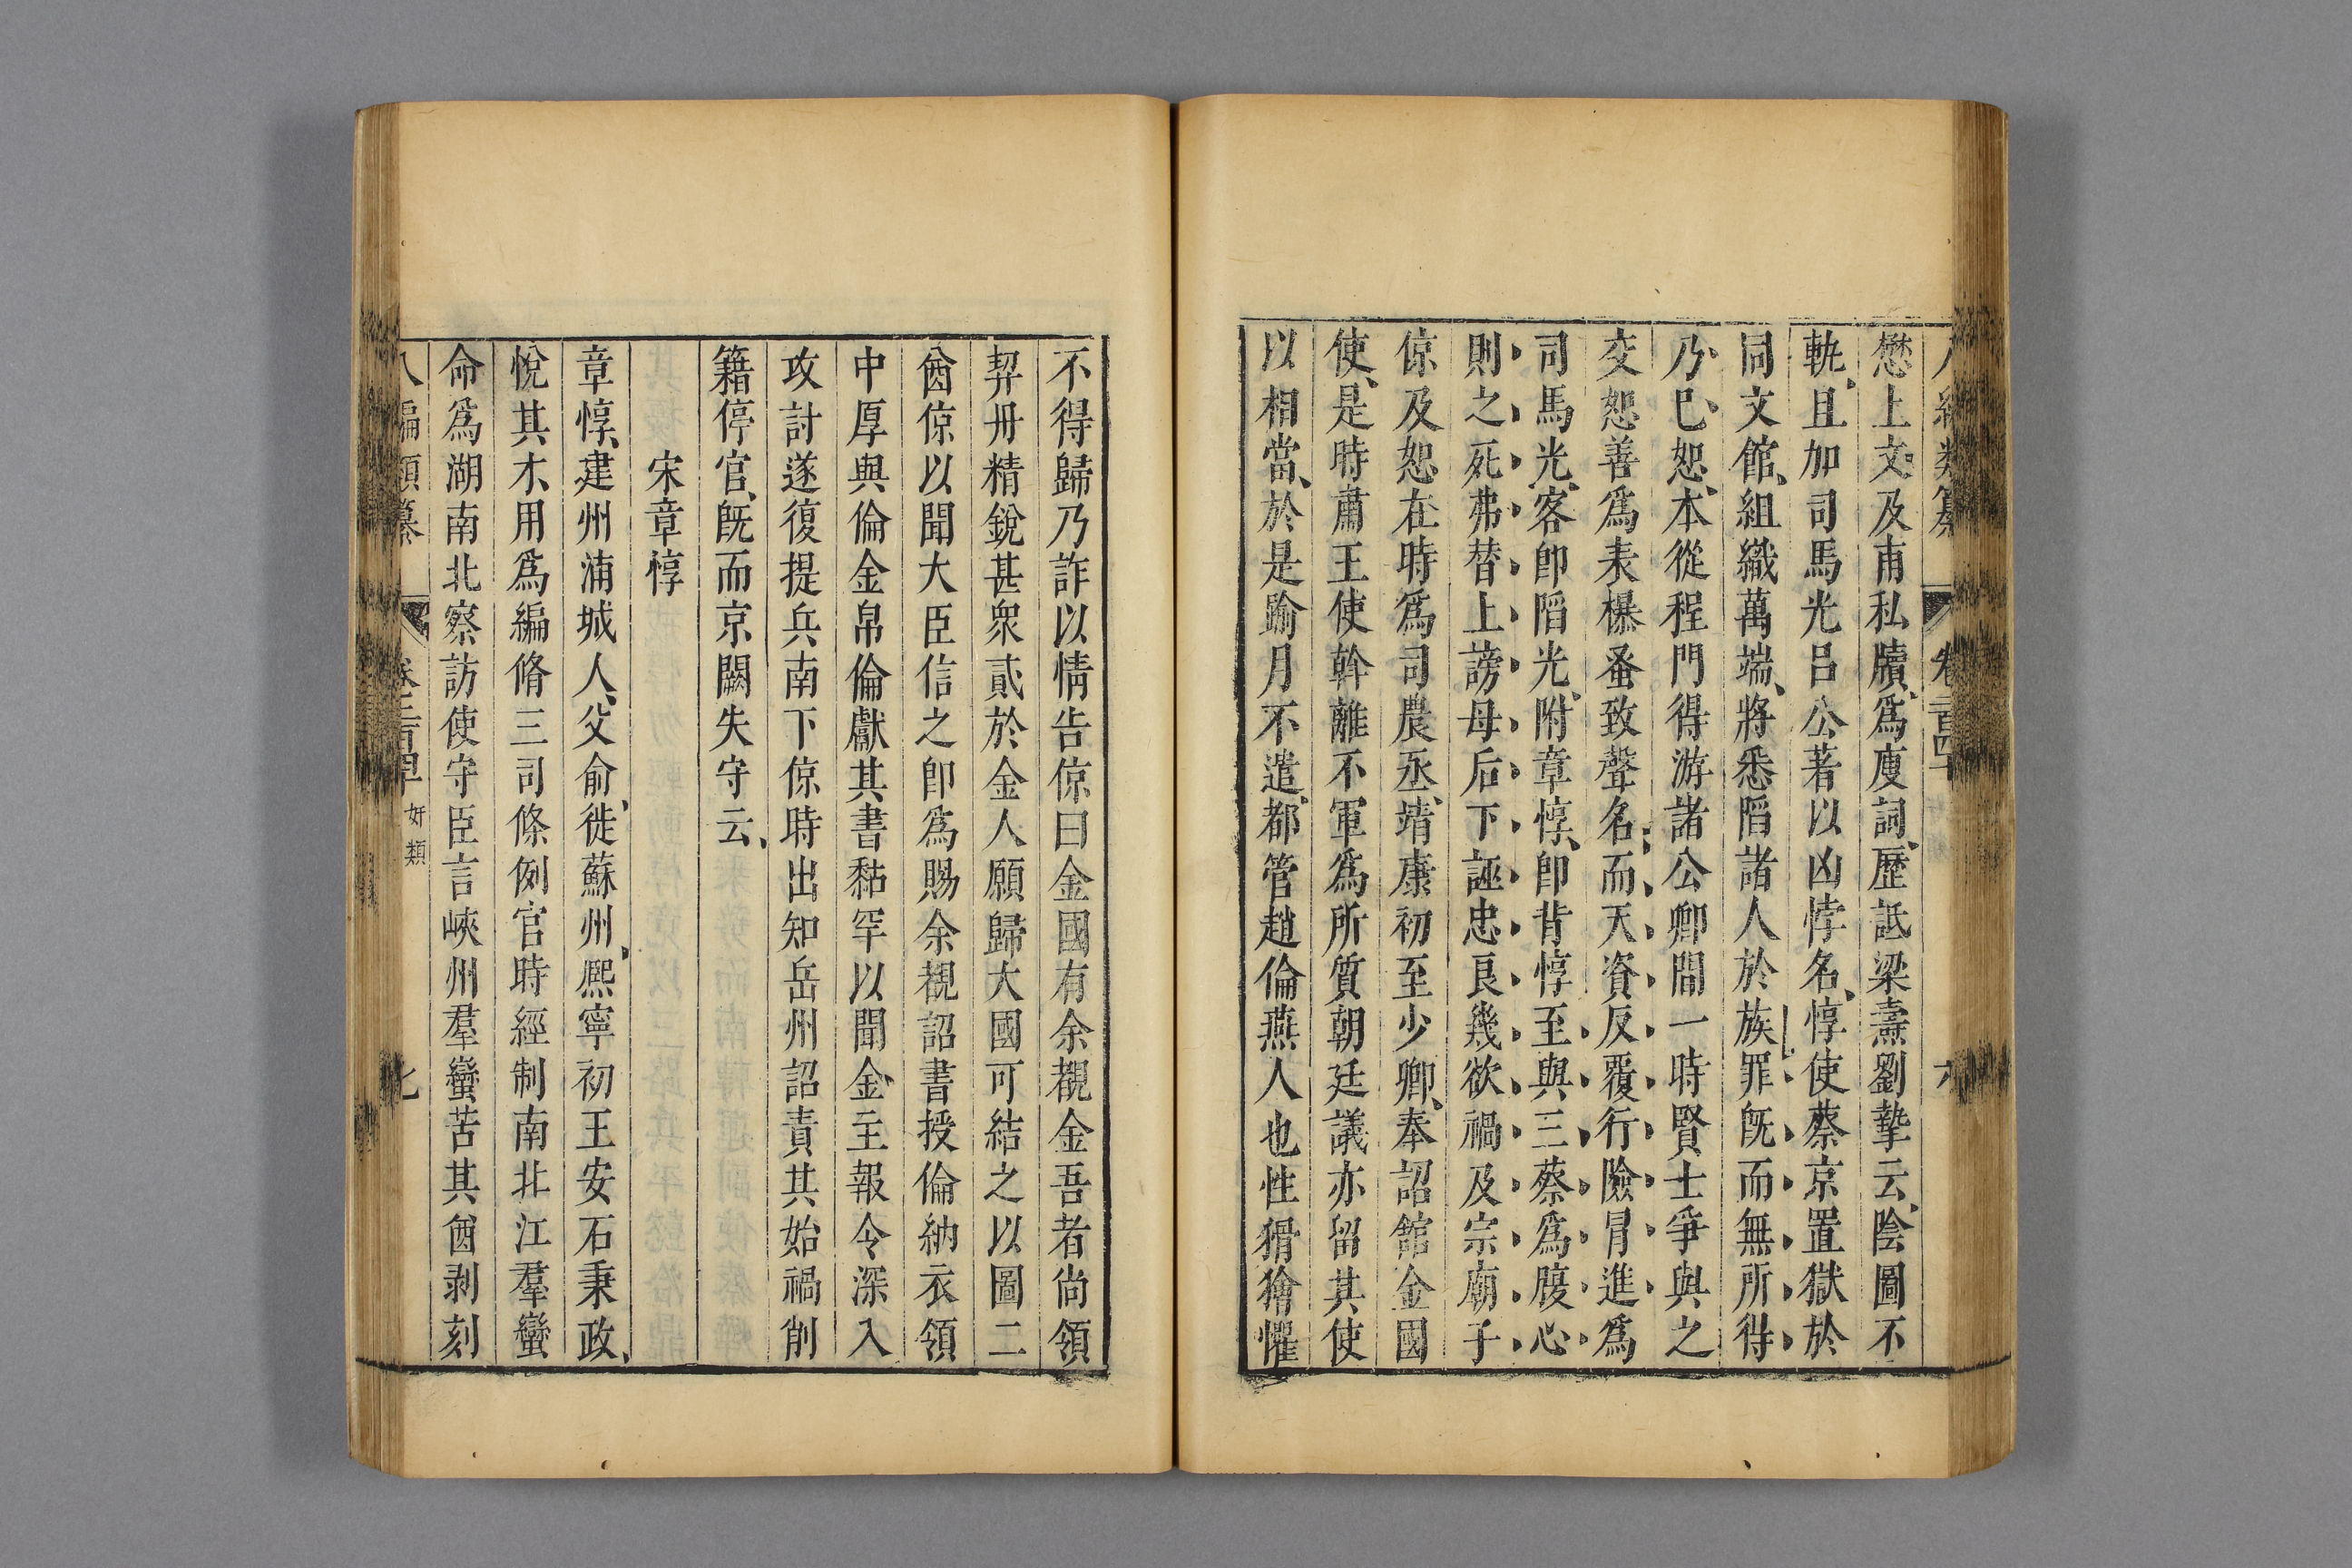 懋上文及甫私牘爲廋詞歷詆梁燾劉摯云陰圖不
軌且加司馬光呂公著以凶悖名惇使蔡京置獄於
同文館組織萬端將悉陷諸人於族罪既而無所得
乃已恕本從程門得游諸公卿間一時賢士爭與之
交恕善爲表襮蚤致聲名而天資反覆行險冒進爲
司馬光客卽陷光附章惇卽背惇至與三蔡爲腹心
則之死弗替上謗母后下誣忠良幾欲禍及宗廟子
倞及恕在時爲司農丞靖康初至少卿奉詔館金國
使是時肅王使斡離不軍爲所質朝廷議亦留其使
以相當於是踰月不遣都管趙倫燕人也性猾獪懼
不得歸乃詐以情告倞曰金國有余覩金吾者尚領
契丹精銳甚衆貳於金人願歸大國可結之以圖二
酋倞以聞大臣信之卽爲賜余覩詔書授倫納衣領
中厚與倫金帛倫獻其書黏罕以聞金主報令深入
攻討遂復提兵南下倞時出知岳州詔責其始禍削
籍停官既而京闕失守云
宋章惇
章惇建州浦城人父俞徙蘇州熙寧初王安石秉政
悅其才用爲編脩三司條例官時經制南北江羣蠻
命爲湖南北察訪使守臣言峽州羣蠻苦其酋剥刻
八編類纂 卷二百四十 奸類 七